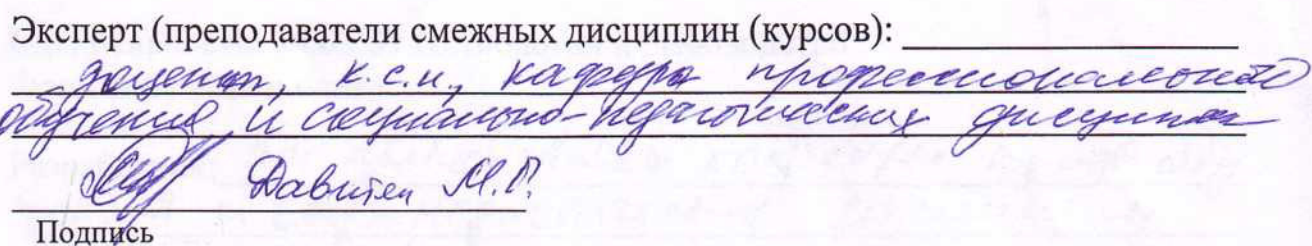 Эксперт (преподаватели смежных дисциплин (курсов):
доцент, к.с.н., кафедра профессионального
обучения и социально-педагогических дисциплин
Давитян М.Г.
Подпись